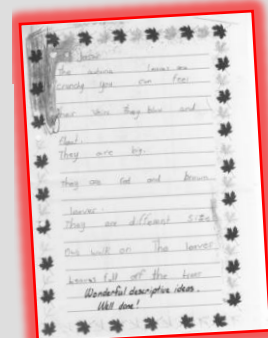 The autumn leaves are
crunchy you can feel
their veins They blow and
float.
They are big.
They are red and brown
leaves.
They are different size
on The leaves
leaves fall off the trees
Wonderful descriptive ideas.
Well done!